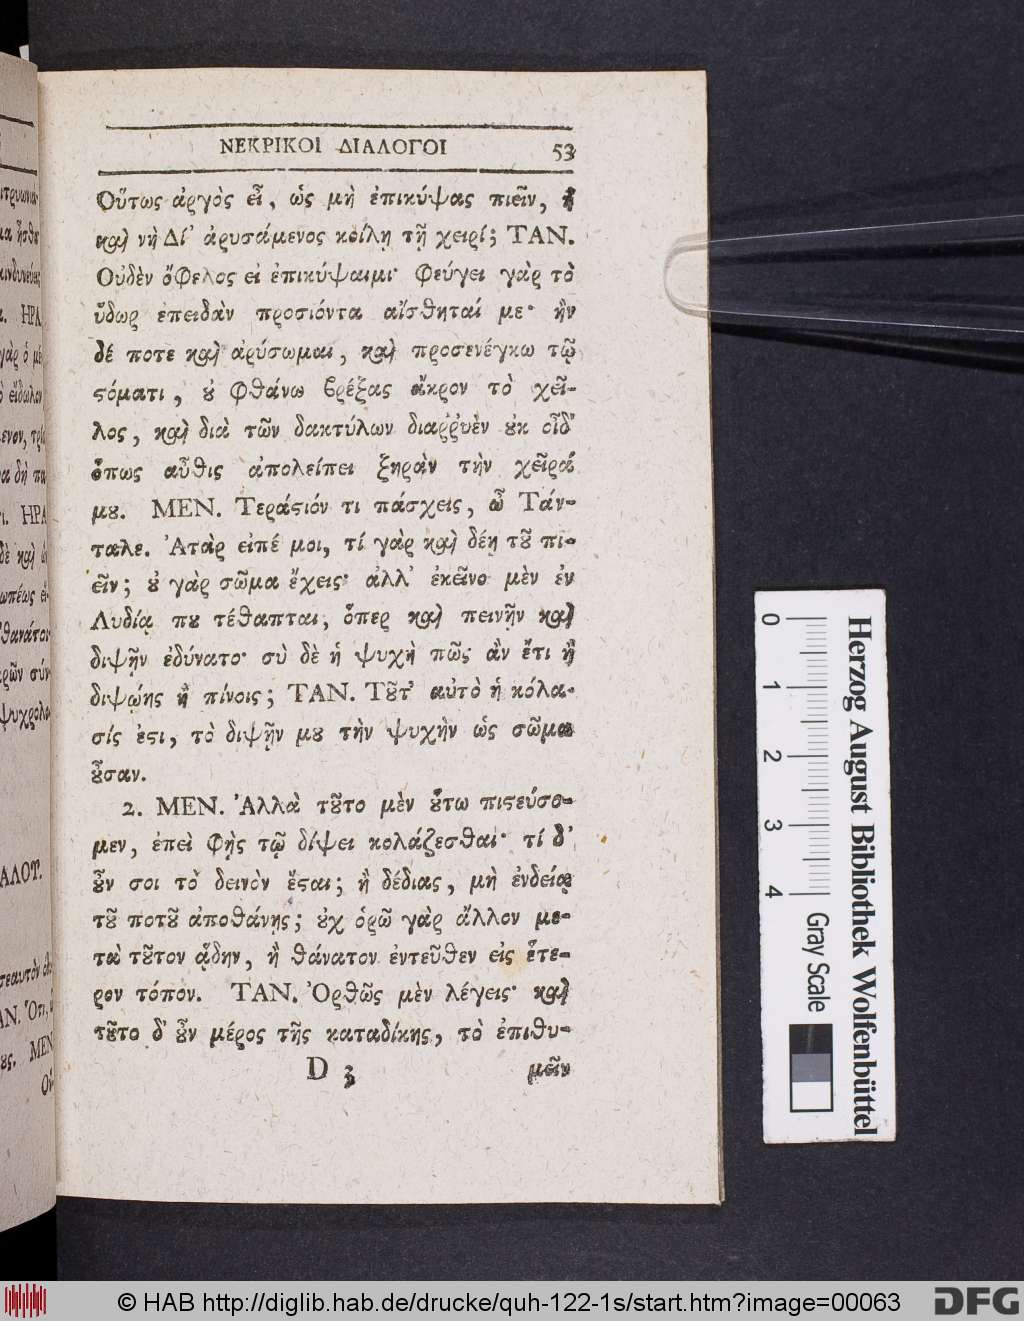 ΝΕΚΡΙΚΟΙ ΔΙΑΛΟΓΟΙ 53
Οὕτως ἀργὸς εἶ, ὡς μὴ ἐπικύψας πιεῖν, ἢ
καὶ νὴ Δί᾽ ἀρυσάμενος κοίλῃ τῇ χειρί; ΤΑΝ.
Οὐδὲν ὄφελος εἰ ἐπικύψαιμι· φεύγει γὰρ τὸ
ὕδωρ ἐπειδὰν προσιόντα αἴσθηταί με· ἢν
δέ ποτε καὶ ἀρύσωμαι, καὶ προσενέγκω τῷ
ϛόματι, ȣ φθάνω βρέξας ἄκρον τὸ χεῖ-
λος, καὶ διὰ τῶν δακτύλων διαῤῥυὲν ȣκ οἶδ᾽
ὅπως αὖθις ἀπολείπει ξηρὰν τὴν χεῖρά
μȣ. ΜΕΝ. Τεράϛιόν τι πάσχεις, ὦ Τάν-
ταλε. Ἀτὰρ εἰπέ μοι, τί γὰρ καὶ δέῃ τȣ͂ πι-
εῖν; ȣ̓ γὰρ σῶμα ἔχεις· ἀλλ᾽ ἐκεῖνο μὲν ἐν
Λυδίᾳ πȣ τέθαπται, ὅπερ καὶ πεινῇν καὶ
διψῇν ἐδύνατο· σὺ δὲ ἡ ψυχὴ πῶς ἂν ἔτι ἢ
διψῴης ἢ πίνοις; ΤΑΝ. Τȣ͂τ᾽ αὐτὸ ἡ κόλα-
σίς ἐϛι, τὸ διψῇν μȣ τὴν ψυχὴν ὡς σῶμα
ȣ̓͂σαν.
2. ΜΕΝ. Ἀλλὰ τȣ͂το μὲν ȣ̔́τω πιϛεύσο-
μεν, ἐπεὶ φῂς τῷ δίψει κολάζεσθαι· τί δ᾽
ȣ̓͂ν σοι τὸ δεινὸν ἔϛαι; ἢ δέδιας, μὴ ἐνδείᾳ
τȣ͂ ποτȣ͂ ἀποθάνῃς; ȣ̓χ ὁρῶ γὰρ ἄλλον με-
τὰ τȣ͂τον ᾅδην, ἢ θάνατον ἐντεῦθεν εἰς ἕτε-
ρον τόπον. ΤΑΝ. Ὀρθῶς μὲν λέγεις· καὶ
τȣ͂το δ᾽ ȣ̓͂ν μέρος τῆς καταδίκης, τὸ ἐπιθυ-
D 3 μεῖν
0 1 2 3 4
Gray Scale
Herzog August Bibliothek Wolfenbüttel
© HAB http://diglib.hab.de/drucke/quh-122-1s/start.htm?image=00063
DFG